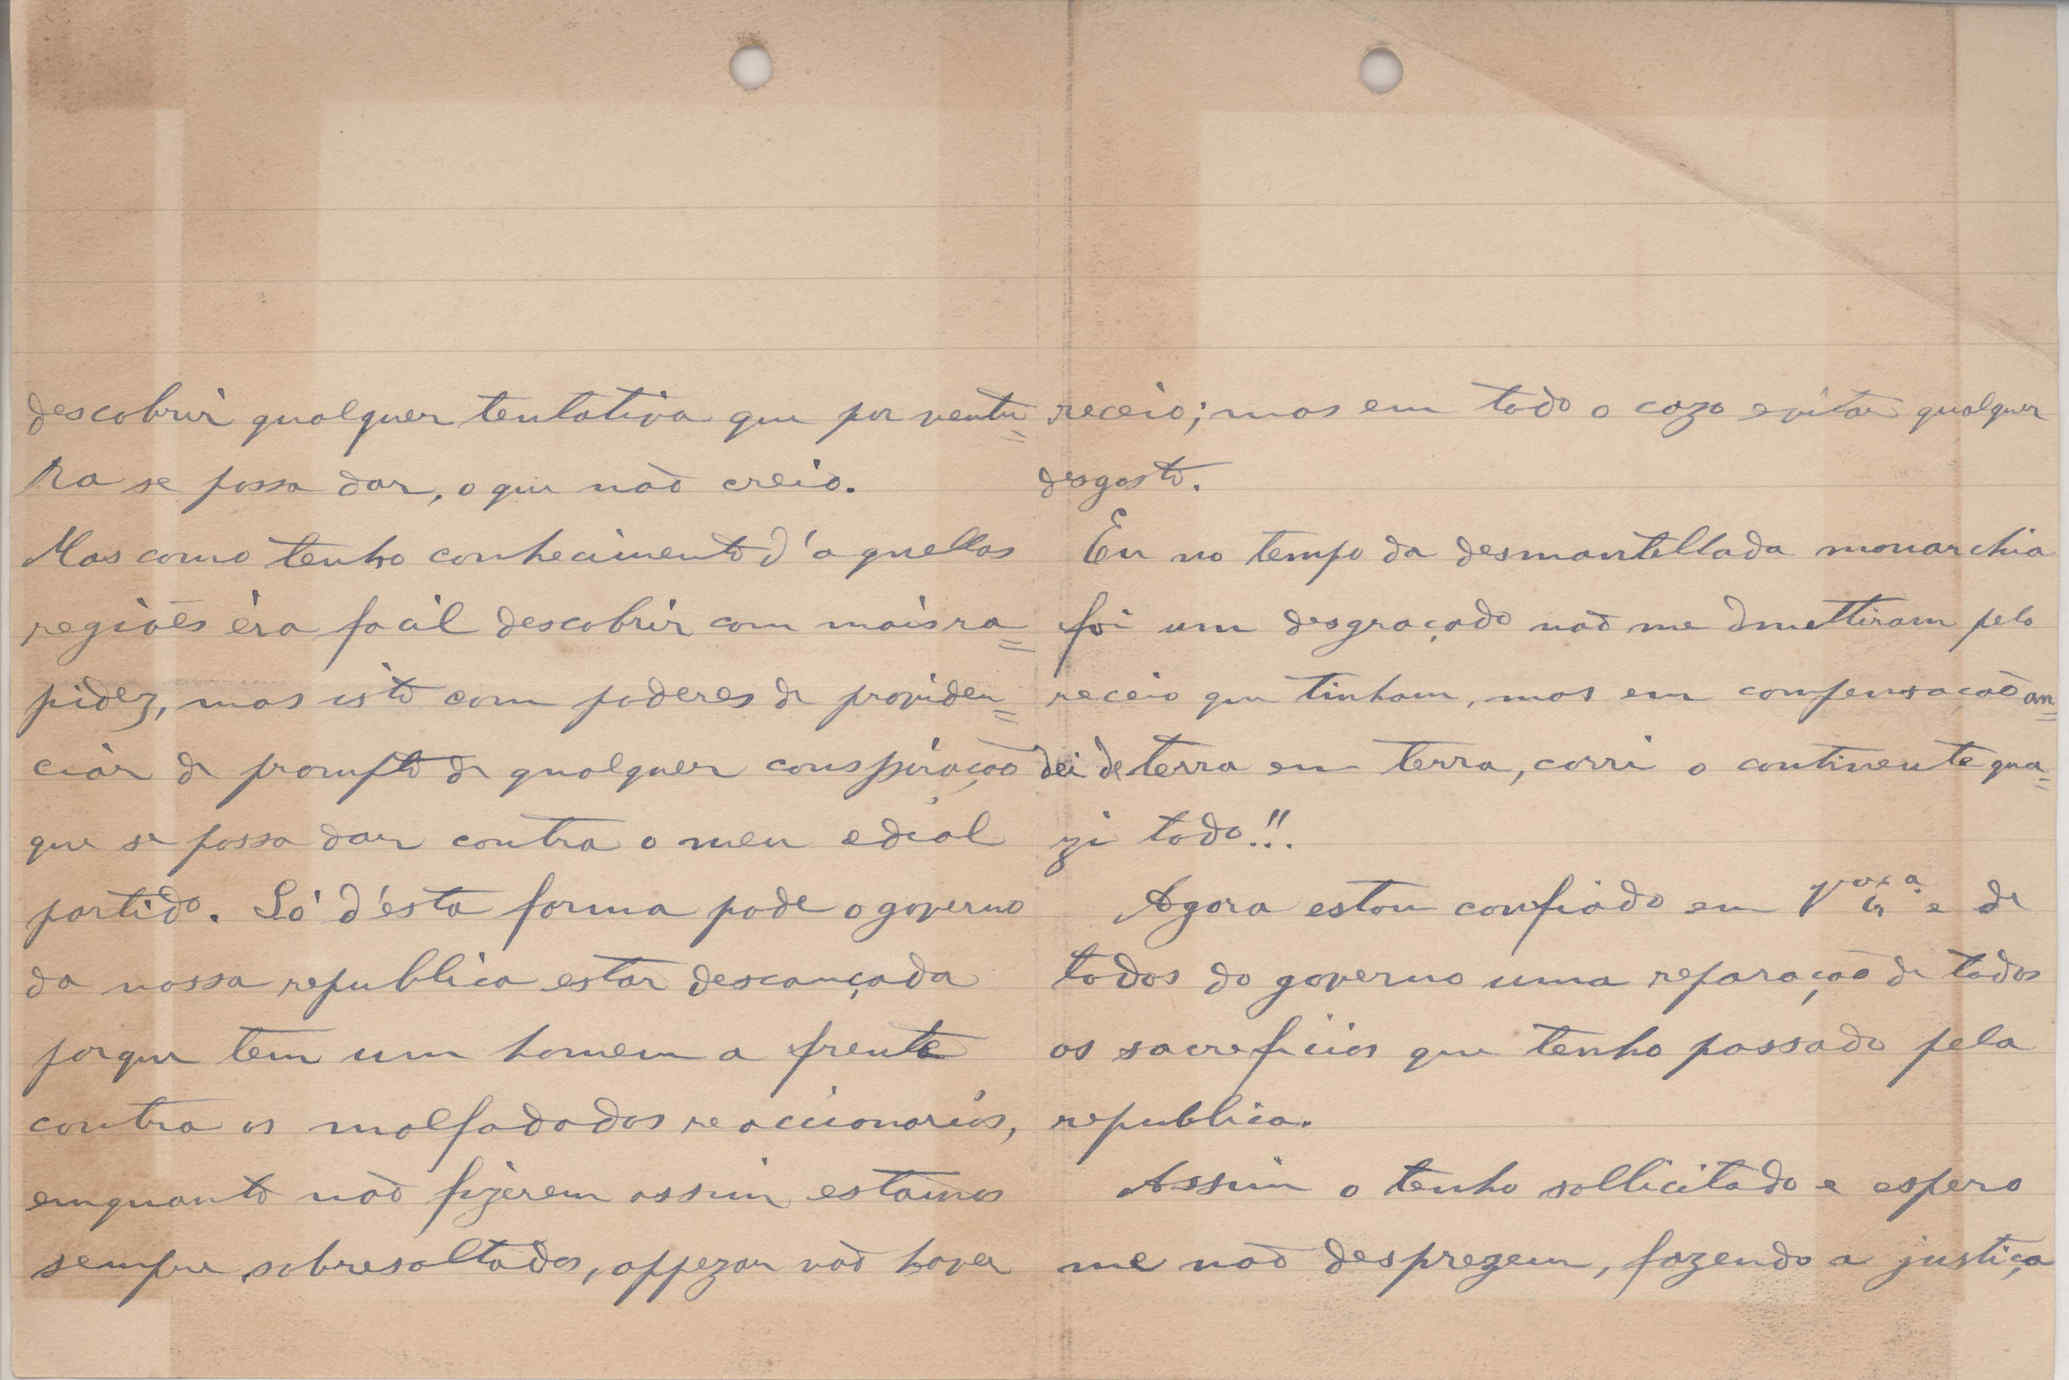 descobrir qualquer tentativa que por ventu=
ra se possa dar, o que não creio.
Mas como tenho conhecimento d'aquellas
regiões éra facil descobrir com mais ra=
pidez, mas isto com poderes de providen=
ciár de prompto de qualquer conspiração
que se possa dar contra o meu edial
partido. Só d'ésta forma pode o governo
da nossa republica estar descançada
porque tem um homem a frente
contra os malfadados reaccionarios,
emquanto não fizerem assim estamos
sempre sobresaltados, appezar não haver
receio; mas em todo o cazo evitar qualquer
desgosto.
Eu no tempo da desmantellada monarchia
foi um desgraçado não me dmettiram pelo
receio que tinham, mas em compensação an=
dei de terra em terra, corri o continente qua=
zi todo!!.
Agora estou confiado em V. Ex.ª e de
todos do governo uma reparação de todos
os sacreficios que tenho passado pela
republica.
Assim o tenho sollicitado e espero
me não desprezem, fazendo a justiça